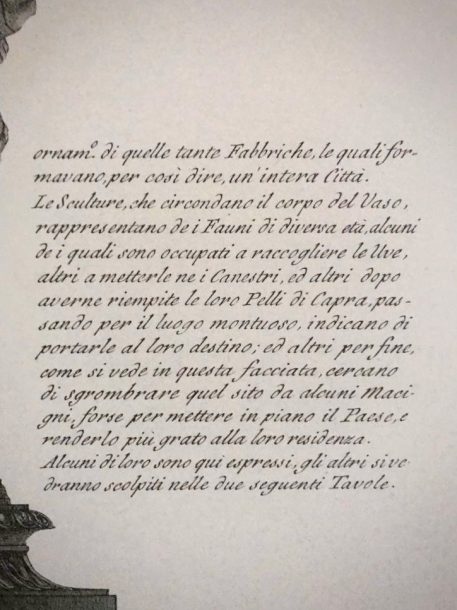 ornamº. di quelle tante Fabbriche, le quali for-
mavano, per così dire, un' intera Città.
Le Sculture, che circondano il corpo del Vaso,
rappresentano de i Fauni di diversa età, alcuni
de i quali sono occupati a raccogliere le Uve,
altri a metterle ne i Canestri, ed altri dopo
averne riempite le loro Pelli di Capra, pas-
sando per il luogo montuoso, indicano di
portarle al loro destino; ed altri per fine,
come si vede in questa facciata, cercano
di sgrombrare quel sito da alcuni Maci-
gni, forse per mettere in piano il Paese, e
renderlo più grato alla loro residenza.
Alcuni di loro sono qui espressi, gli altri si ve-
dranno scolpiti nelle due seguenti Tavole.